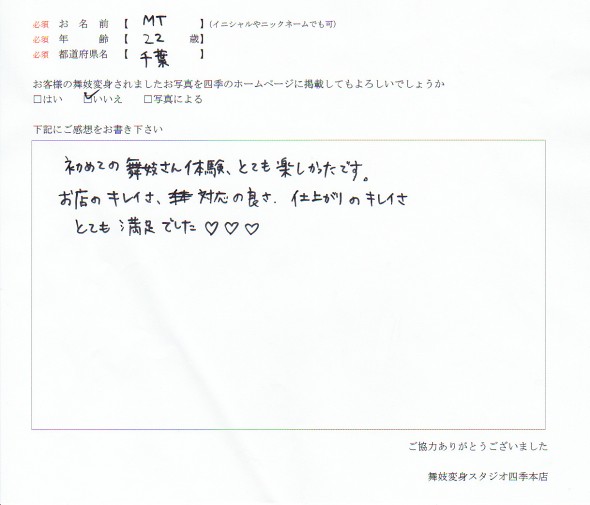 必須 お名前【 MT 】(イニシャルやニックネームでも可)
必須 年齢【 22 歳】
必須 都道府県名【 千葉 】
お客様の舞妓変身されましたお写真を四季のホームページに掲載してもよろしいでしょうか
□はい ☑いいえ □写真による
下記にご感想をお書き下さい
初めての舞妓さん体験、とても楽しかったです。
お店のキレイさ、対応の良さ、仕上がりのキレイさ
とても満足でした♡♡♡
ご協力ありがとうございました
舞妓変身スタジオ四季本店